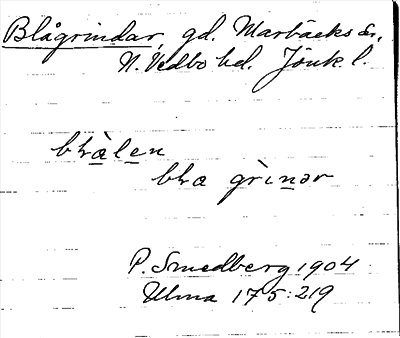 Blågrindar, gd. Marbäcks sn,
N. Vedbo hd. Jönk. l.
bla grinər
P. Smedberg 1904
Ulma 175:219